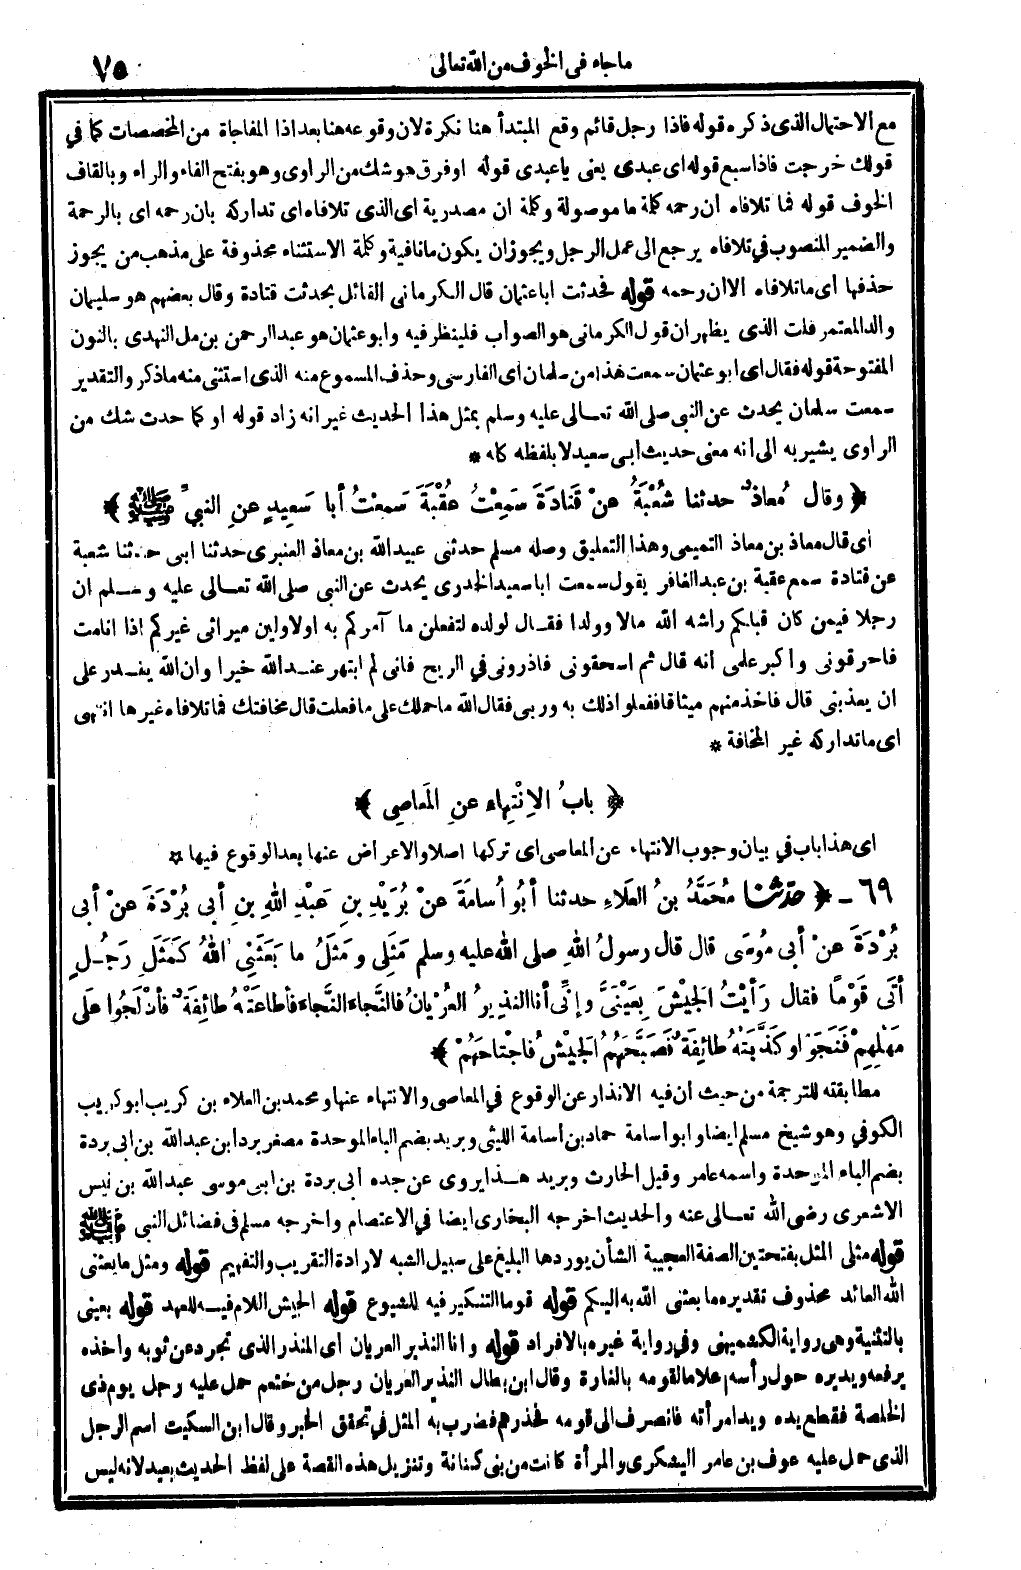 ما جاء في الخوف من الله تعالى
٧٥
مع الاحتمال الذى ذكره قوله فاذا رجل قائم وقع المبتدأ هنا نكرة لان وقوعه هنا بعد اذا المفاجاة من المخصصات كما في
قولك خرجت فاذا سبع قوله اى عبدى يعنى يا عبدى قوله او فرق هو شك من الراوى وهو بفتح الفاء والراء وبالقاف
الخوف قوله فما تلافاه ان رحمه كلمة ما موصولة وكلمة ان مصدرية اى الذى تلافاه اى تداركه بان رحمه اى بالرحمة
والضمير المنصوب في تلافاه يرجع الى عمل الرجل ويجوز ان يكون ما نافية وكلمة الاستثناء محذوفة على مذهب من يجوز
حذفها اى ما تلافاه الا ان رحمه قوله فحدثت ابا عثمان قال الكرمانى القائل بحدثت قتادة وقال بعضهم هو سليمان
والد المعتمر قلت الذى يظهر ان قول الكرمانى هو الصواب فلينظر فيه وابو عثمان هو عبد الرحمن بن مل النهدى بالنون
المفتوحة قوله فقال اى ابو عثمان سمعت هذا من سلمان اى الفارسى وحذف المسموع منه الذى استثنى منه ما ذكر والتقدير
سمعت سلمان يحدث عن النبى صلى الله تعالى عليه وسلم بمثل هذا الحديث غير انه زاد قوله او كما حدث شك من
الراوى يشير به الى انه معنى حديث ابى سعيد لا بلفظه كله *
﴿ وقال مُعاذٌ حدثنا شُعْبَةُ عنْ قَتادَةَ سَمِعْتُ عُقْبَةَ سَمعْتُ أبا سَعِيدٍ عنِ النبيِّ ﷺ ﴾
اى قال معاذ بن معاذ التميمى وهذا التعليق وصله مسلم حدثنى عبيد الله بن معاذ العنبرى حدثنا ابى حدثنا شعبة
عن قتادة سمع عقبة بن عبد الغافر يقول سمعت ابا سعيد الخدرى يحدث عن النبى صلى الله تعالى عليه وسلم ان
رجلا فيمن كان قبلكم راشه الله مالا وولدا فقال لولده لتفعلن ما آمركم به اولاولين ميراثى غيركم اذا انامت
فاحرقونى واكبر علمى انه قال ثم اسحقونى فاذرونى في الريح فانى لم ابتهر عند الله خيرا وان الله يقدر على
ان يعذبنى قال فاخذ منهم ميثاقا ففعلوا ذلك به وربى فقال الله ما حملك على ما فعلت قال مخافتك فما تلافاه غيرها انتهى
اى ما تداركه غير المخافة *
﴿ بابُ الاِنْتِهاءِ عنِ المَعاصِى ﴾
اى هذا باب في بيان وجوب الانتهاء عن المعاصى اى تركها اصلا والاعراض عنها بعد الوقوع فيها *
٦٩ - ﴿ حدثنا مُحَمَّدُ بنُ العَلاءِ حدثنا أبُو أُسامَةَ عنْ بُرَيْدِ بنِ عَبْدِ اللهِ بنِ أبى بُرْدَةَ عنْ أبى
بُرْدَةَ عنْ أبى مُوسَى قال قال رسولُ اللهِ صلى الله عليه وسلم مَثَلِى ومَثَلُ ما بَعَثَنِى اللهُ كَمَثَلِ رَجُلٍ
أتَى قَوْمًا فقال رَأيْتُ الجَيْشَ بِعَيْنَىَّ وإنِّى أنا النذيرُ العُرْيانُ فالنَّجاءَ النَّجاءَ فأطاعَتْهُ طائِفَةٌ فأدْلَجُوا علَى
مَهْلِهِمْ فَنَجَوْا وكَذَّبَتْهُ طائِفَةٌ فَصَبَّحَهُمُ الجَيْشُ فاجْتاحَهُمْ ﴾
مطابقته للترجمة من حيث ان فيه الانذار عن الوقوع في المعاصى والانتهاء عنها ومحمد بن العلاء بن كريب ابو كريب
الكوفي وهو شيخ مسلم ايضا وابو أسامة حماد بن أسامة الليثى وبريد بضم الباء الموحدة مصغر برد ابن عبد الله بن ابى بردة
بضم الباء الموحدة واسمه عامر وقيل الحارث وبريد هذا يروى عن جده ابى بردة بن ابى موسى عبد الله بن قيس
الاشعرى رضى الله تعالى عنه والحديث اخرجه البخارى ايضا في الاعتصام واخرجه مسلم فى فضائل النبى ﷺ
قوله مثلى المثل بفتحتين الصفة العجيبة الشأن يوردها البليغ على سبيل الشبه لارادة التقريب والتفهيم قوله ومثل ما بعثنى
الله العائد محذوف تقديره ما بعثنى الله به اليكم قوله قوما التنكير فيه للشيوع قوله الجيش اللام فيه للعهد قوله بعينى
بالتثنية وهى رواية الكشميهنى وفى رواية غيره بالافراد قوله وانا النذير العريان اى المنذر الذى تجرد عن ثوبه واخذه
يرفعه ويديره حول رأسه اعلاما لقومه بالغارة وقال ابن بطال النذير العريان رجل من خثعم حمل عليه رجل يوم ذى
الخلصة فقطع يده ويد امرأته فانصرف الى قومه فحذرهم فضرب به المثل في تحقق الخبر وقال ابن السكيت اسم الرجل
الذى حمل عليه عوف بن عامر اليشكرى والمرأة كانت من بنى كنانة وتنزيل هذه القصة على لفظ الحديث بعيد لانه ليس